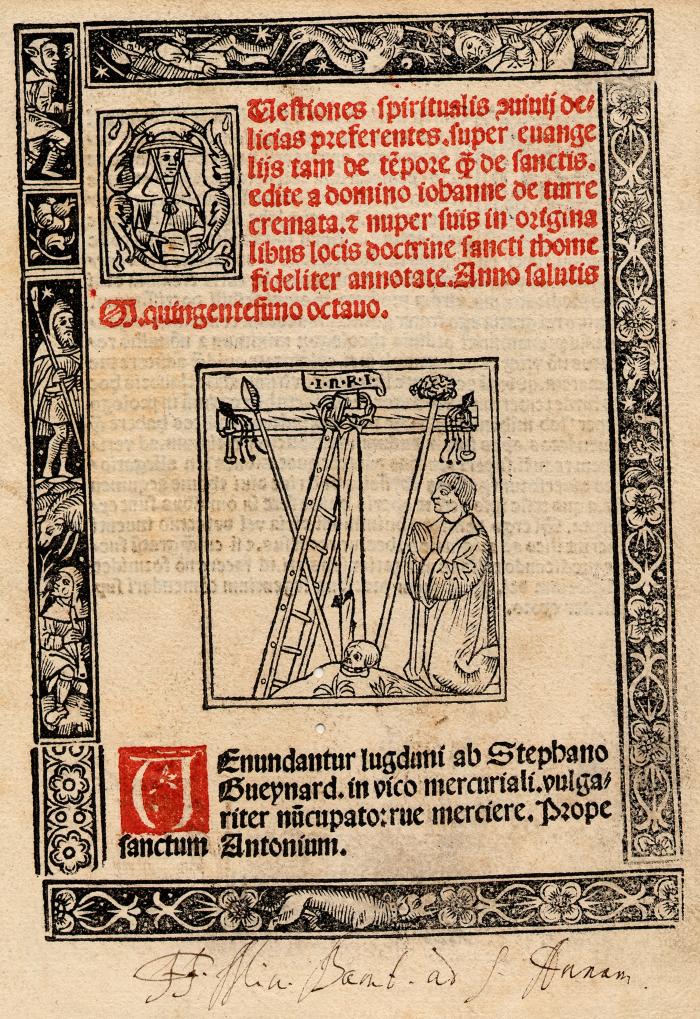 QUestiones spiritualis ꝯuiuij de⸗
licias preferentes. super euange
lijs tam de tēpore ꝙ̄ de sanctis.
edite a domino iohanne de turre
cremata. ⁊ nuper suis in origina
libus locis doctrine sancti thome
fideliter annotate. Anno salutis
M.quingentesimo octauo.
.I.n.R.I.
VEnundantur lugduni ab Stephano
Gueynard. in vico mercuriali. vulga⸗
riter nūcupato: rue merciere. Prope
sanctum Antonium.
ad S. Annam.